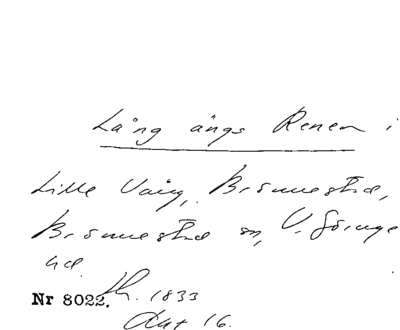 Lång ängs Renen i
Lille Vång, Brömsestad,
Brömsestad sn, V. Göinge
hd.
Nr 8022. Th. 1833
Akt 16.